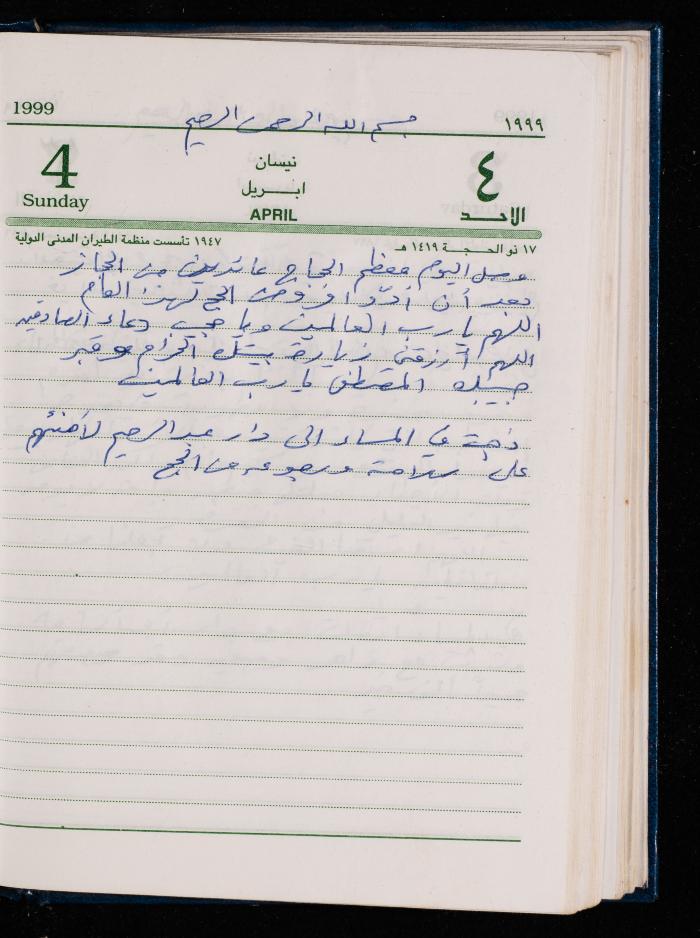 1999
١٩٩٩
بسم الله الرحمن الرحيم
4
Sunday
نيسان
ابـريـل
APRIL
٤
الاحـد
١٩٤٧ تأسست منظمة الطيران المدنى الدولية
١٧ ذو الحـجـة ١٤١٩ هـ
وصل اليوم معظم الحجاج عائدين من الحجاز
بعد أن أدّوا فروض الحج لهذا العام
اللهم يا رب العالمين ويا مجيب دعاء الصادقين
اللهم أرزقني زيارة بيتك الحرام وقبر
حبيبك المصطفى يا رب العالمين
ذهبت في المساء الى دار عبد الرحيم لأهنئهم
على سلامة ورجوعه من الحج